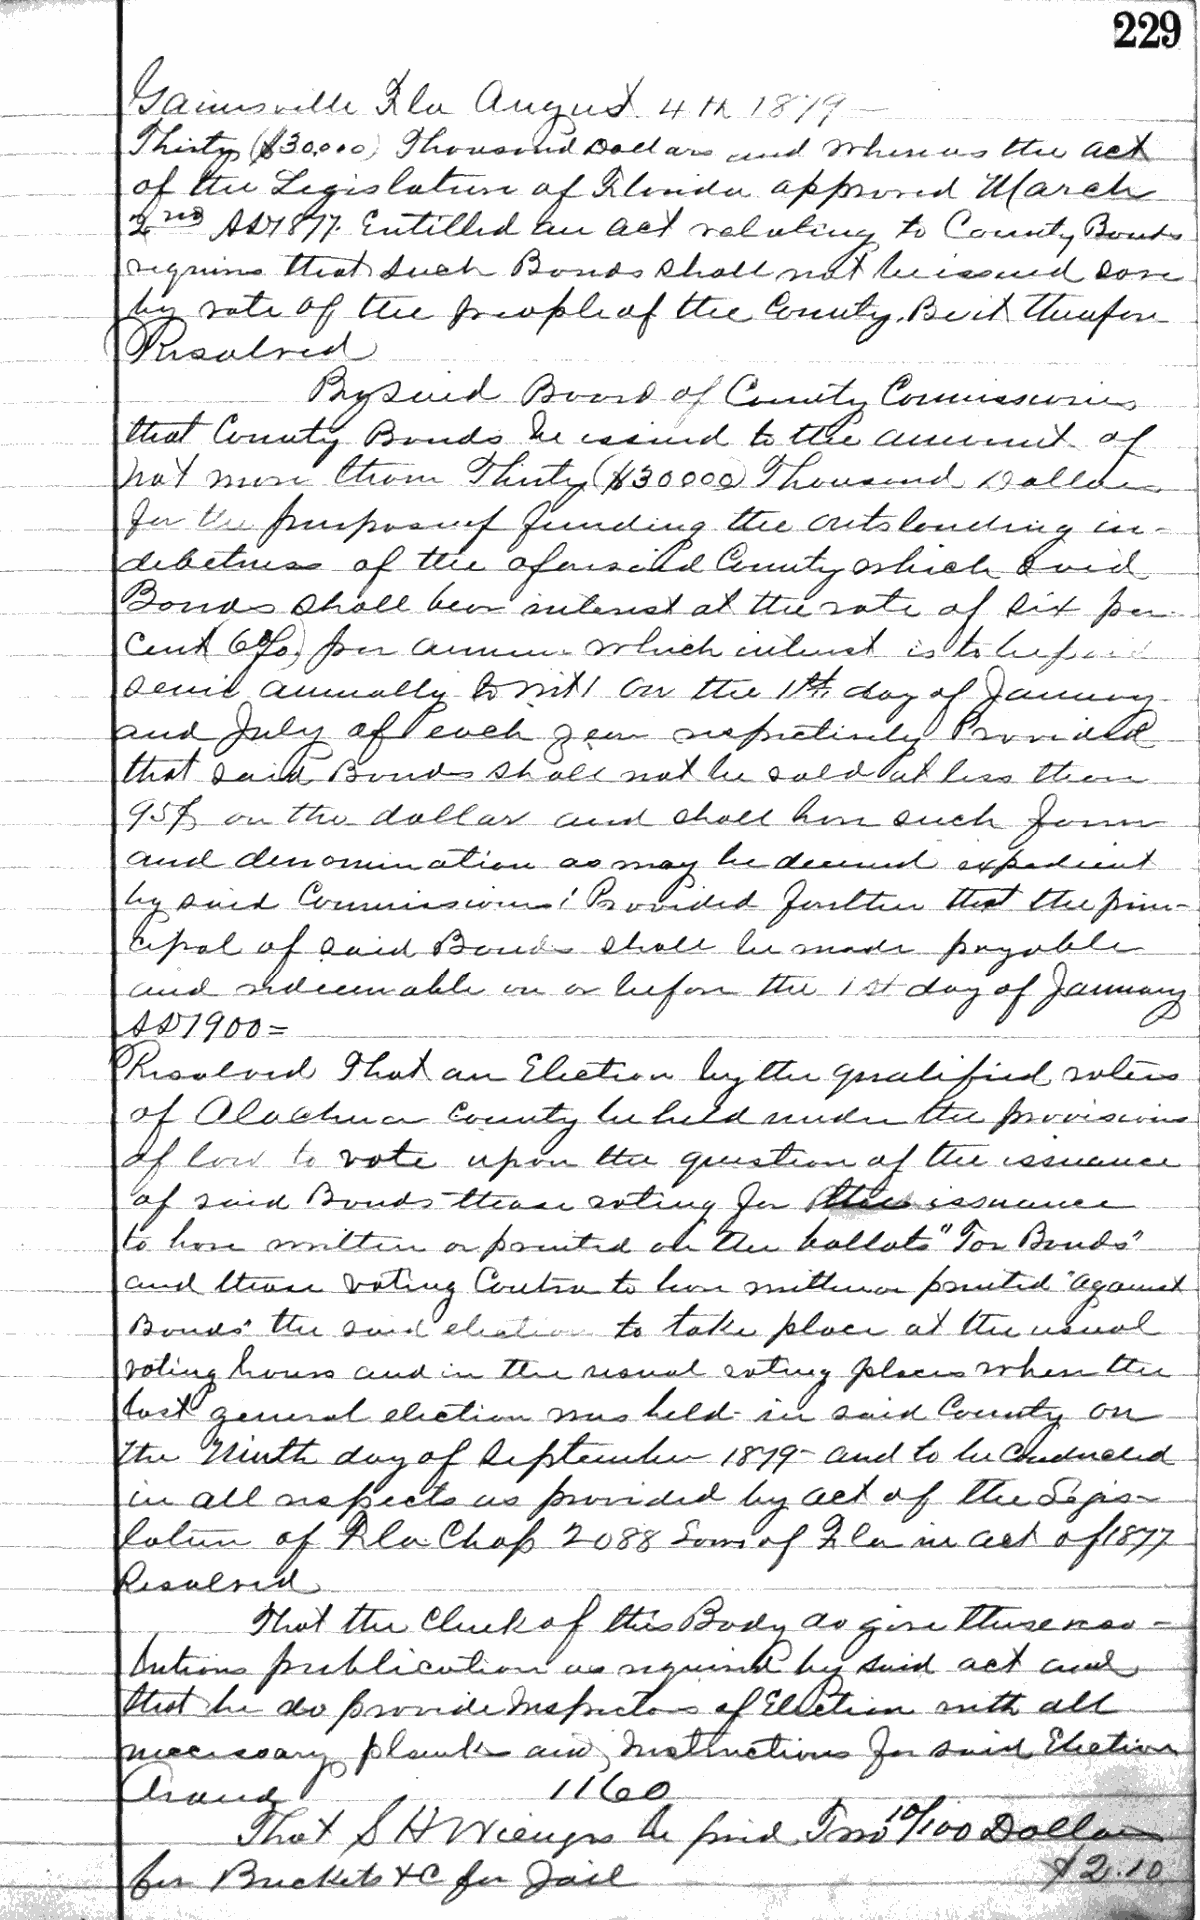 229
Gainesville Fla August 4th 1879
Thirty ($30,000) Thousand Dollars and Whereas the act
of the Legislature of Florida approved March
2nd AD 1877. Entitled an act relating to County Bonds
requires that such Bonds shall not be issued save
by vote of the people of the County. Be it therefore
Resolved
By said Board of County Commissioners
that County Bonds be issued to the amount of
not more than Thirty ($30000) Thousand Dollars
for the purpose of funding the outstanding in-
debetness of the aforesaid County which said
Bonds shall bear interest at the rate of six per
cent (6%) per annum which interest is to be paid
semi annually to wit! On the 1st day of January
and July of each year respectively Provided
that said Bonds shall not be sold at less than
95¢ on the dollar and shall have such form
and denomination as may be deemed expedient
by said Commissioners! Provided further that the prin-
cipal of said Bonds shall be made payable
and redeemable on or before the 1st day of January
AD 1900=
Resolved That an Election by the qualified voters
of Alachua County be held under the provisions
of law to vote upon the question of the issuance
of said Bonds those voting for the issuance
to have written or printed on the ballots "For Bonds"
and those voting Contra to have written or printed "against
Bonds" the said election to take place at the usual
voting hours and in the usual voting places where the
last general election was held in said County on
the Ninth day of September 1879- and to be conducted
in all respects as provided by act of the Legis-
lature of Fla Chap 2088 Laws of Fla in act of 1877
Resolved
That the Clerk of this Body do give these reso-
lutions publication as required by said act and
that he do provide Inspectors of Election with all
necessary blanks and Instructions for said Election
1160
That S H be paid Two 10/100 Dollars
for Buckets &C for Jail $2.10